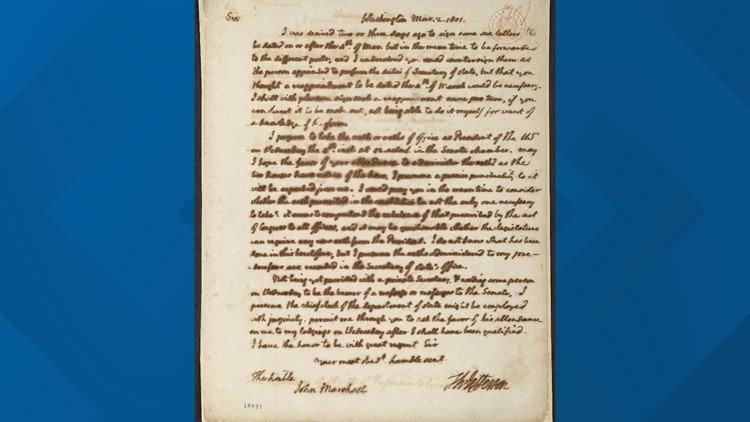 Sir Washington Mar. 2. 1801.
I was desired two or three days ago to sign some sea letters
be dated on or after the 4th. of Mar. but in the mean time to be forwarded
to the different ports, and I understood you would countersign them as
the person appointed to perform the duties of Secretary of state, but that you
thought a reappointment to be dated the 4th. of March would be necessary.
I shall with pleasure sign such a reappointment nunc pro tunc, if you
can direct it to be made out, not being able to do it myself for want of
a knowledge of the form.
I propose to take the oath or oaths of office as President of the US
on Wednesday the 4th. inst. at 12. oclock in the Senate chamber. may
I hope the favor of your attendance to administer the oath? as the
two houses have notice of the hour, I presume a precise punctuality to it
will be expected from me. I would pray you in the mean time to consider
whether the oath prescribed in the constitution be not the only one necessary
to take? it seems to comprehend the substance of that prescribed by the act
of Congress to all officers, and it may be questionable whether the legislature
can require any new oath from the President. I do not know what has been
done in this heretofore, but I presume the oaths administered to my pre-
decessors are recorded in the Secretary of state's office.
Not being yet provided with a private Secretary, & needing some person
on Wednesday to be the bearer of a message or messages to the Senate, I
presume the chief clerk of the department of state might be employed
with propriety. permit me through you to ask the favor of his attendance
on me to my lodgings on Wednesday after I shall have been qualified.
I have the honor to be with great respect Sir
your most obedt. humble servt
Th: Jefferson
The honble
John Marshall